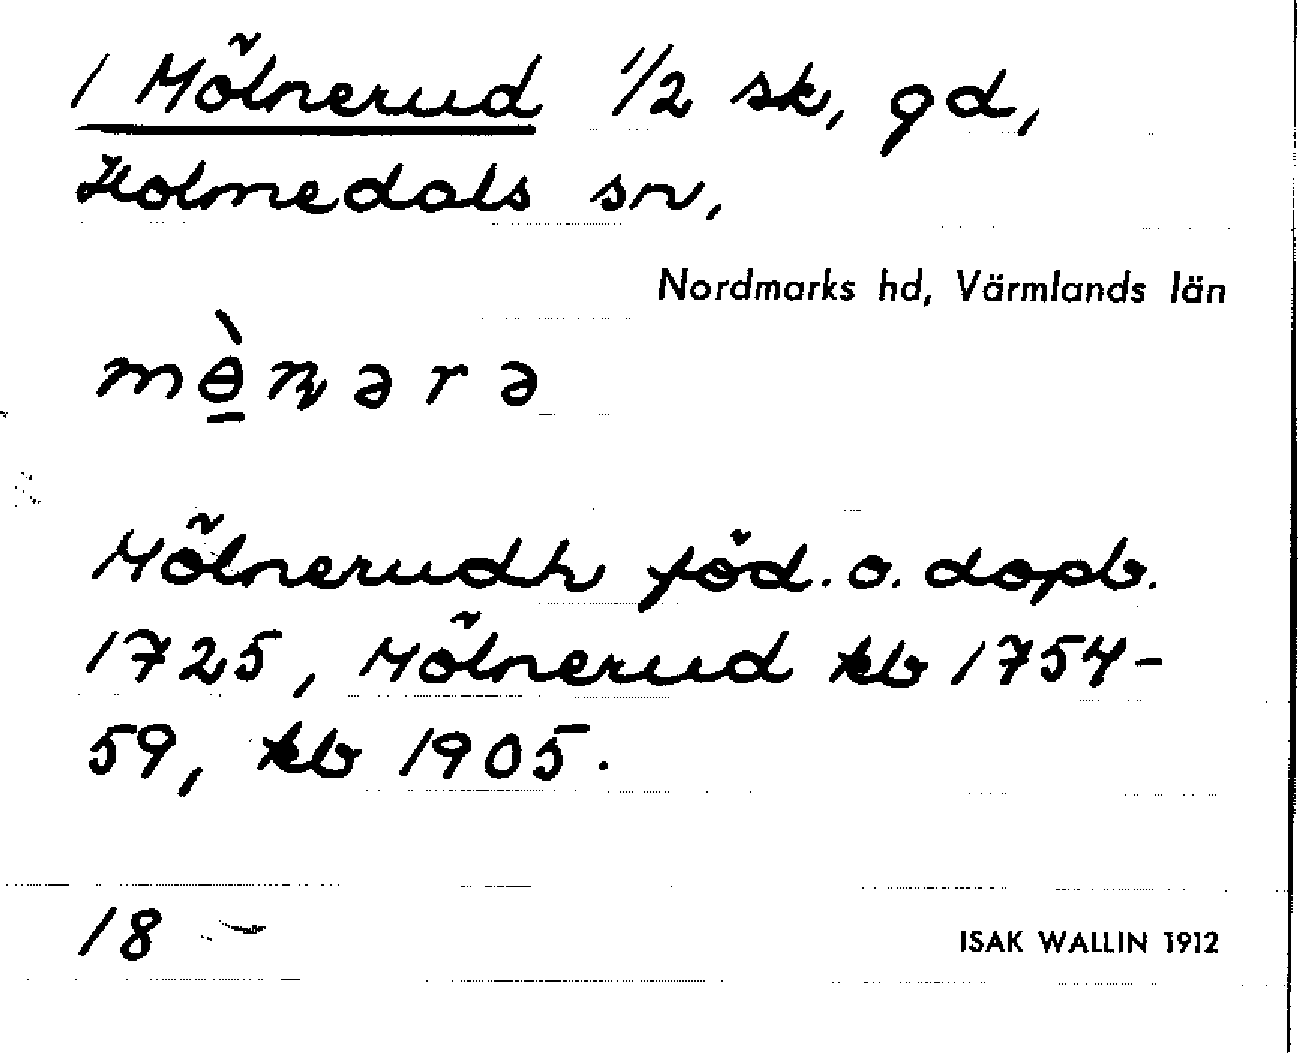 1 Mölnerud 1/2 sk, gd,
Holmedals sn,
Nordmarks hd, Värmlands län
mɵ̯̀ɳərə
Mölnerudh föd. o. dopb.
1725, Mölnerud kb 1754-
59, kb 1905.
18
ISAK WALLIN 1912